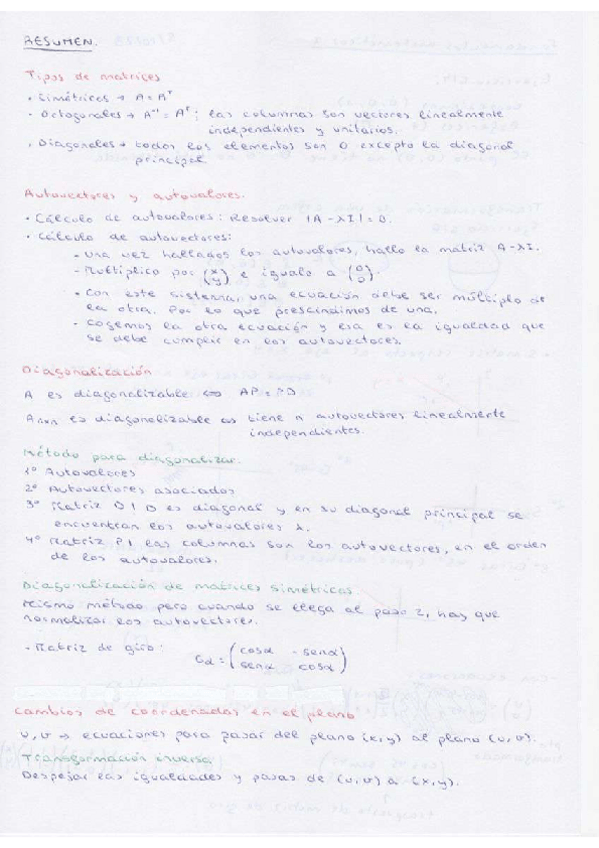 RESUMEN.
Tipos de matrices
· Simétricas → A = Aᵀ
· Octogonales → A⁻¹ = Aᵀ; las columnas son vectores linealmente
independientes y unitarios.
· Diagonales → todos los elementos son 0 excepto la diagonal
principal.
Autovectores y autovalores.
· Cálculo de autovalores: Resolver |A - λI| = 0.
· Cálculo de autovectores:
- Una vez hallados los autovalores, hallo la matriz A - λI.
- Multiplico por (x y) e igualo a (0 0).
- Con este sistema, una ecuación debe ser múltiplo de
la otra. Por lo que prescindimos de una.
- Cogemos la otra ecuación y esa es la igualdad que
se debe cumplir en los autovectores.
Diagonalización
A es diagonalizable ⇔ AP = PD
Anxn es diagonalizable ⇔ tiene n autovectores linealmente
independientes.
Método para diagonalizar.
1º Autovalores
2º Autovectores asociados
3º Matriz D | D es diagonal y en su diagonal principal se
encuentran los autovalores λ.
4º Matriz P | las columnas son los autovectores, en el orden
de los autovalores.
Diagonalización de matrices simétricas.
Mismo método pero cuando se llega al paso 2, hay que
normalizar los autovectores.
- Matriz de giro: Gα = (cosα -senα
senα cosα)
Cambios de coordenadas en el plano
u, v → ecuaciones para pasar del plano (x,y) al plano (u,v).
Transformación inversa
Despejar las igualdades y pasas de (u,v) a (x,y).